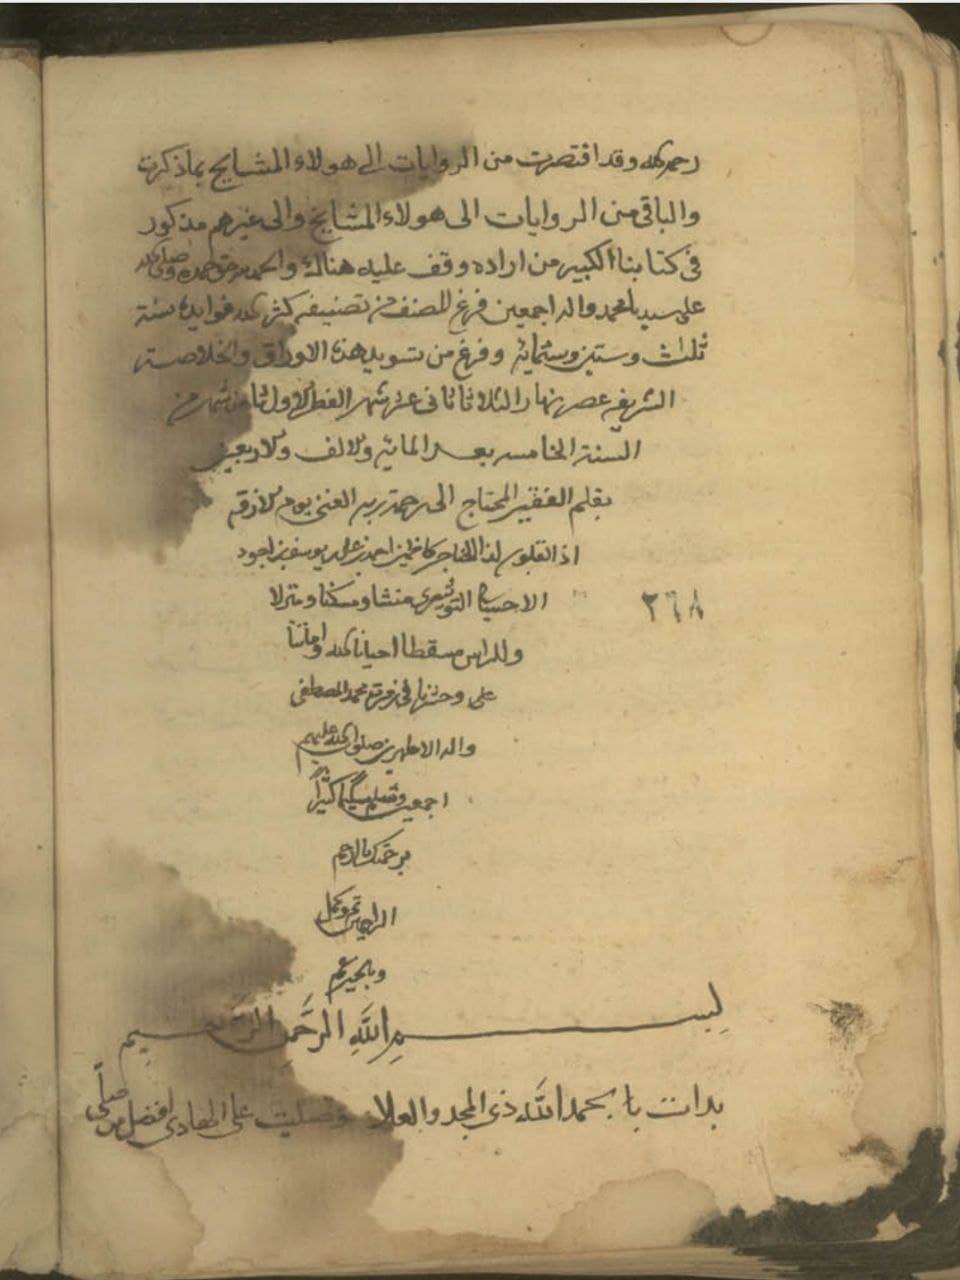 رحمه الله وقد اقتصرت من الروايات الى هولاء المشايخ بما ذكرت
والباقي من الروايات الى هولاء المشايخ والى غيرهم مذكور
في كتابنا الكبير من اراده وقف عليه هناك والحمد لله حق حمده وصلى الله
على سيدنا محمد واله اجمعين فرغ المصنف من تصنيفه كثر الله فوايده سنة
ثلث وستين وستمائة وفرغ من تسويد هذه الاوراق والخلاصة
الشريفة عصر نهار الثلاثا ثاني عشر شهر
السنة الخامسه بعد المائة والالف والاربعين
بقلم الفقير المحتاج الى رحمة ربه الغني يوم لازفه
اذ القلوب لدا الحناجر كاظمين احمد بن علي بن يوسف بن
الاحسائي التويثيري منشا ومسكنا ومنزلا
وللراس مسقطا احيانا الله واماتنا
على وحشرنا في زمرته محمد المصطفى
واله الاطهرين صلوات الله عليهم
اجمعين وسلم تسليما كثيرا
برحمتك يا ارحم
الراحمين تم وكمل
وبالخير عم
٢٦٨
بسم الله الرحمن الرحيم
بدات بحمد الله ذي المجد والعلا وصليت على الهادي افضل من صلى